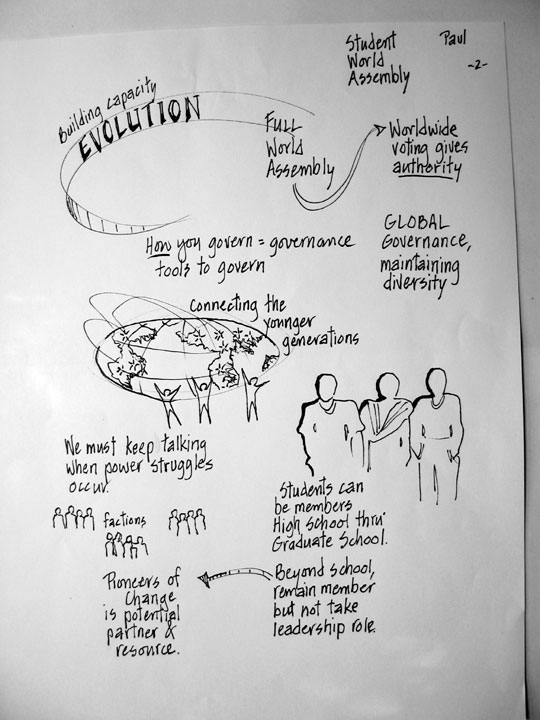 Student
World
Assembly
Paul
-2-
Building Capacity
EVOLUTION
FULL
World
Assembly
Worldwide
voting gives
authority
How you govern = governance
tools to govern
GLOBAL
Governance,
maintaining
diversity
Connecting the
younger
generations
We must keep talking
when power struggles
occur.
factions
Students can
be members
High School thru'
Graduate School.
Pioneers of
Change
is potential
partner &
resource.
Beyond school,
remain member
but not take
leadership role.